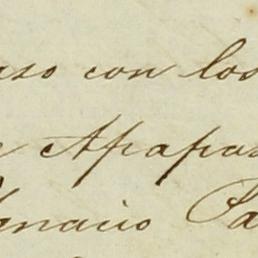 uso con los
Apapas
Ignacio Pa